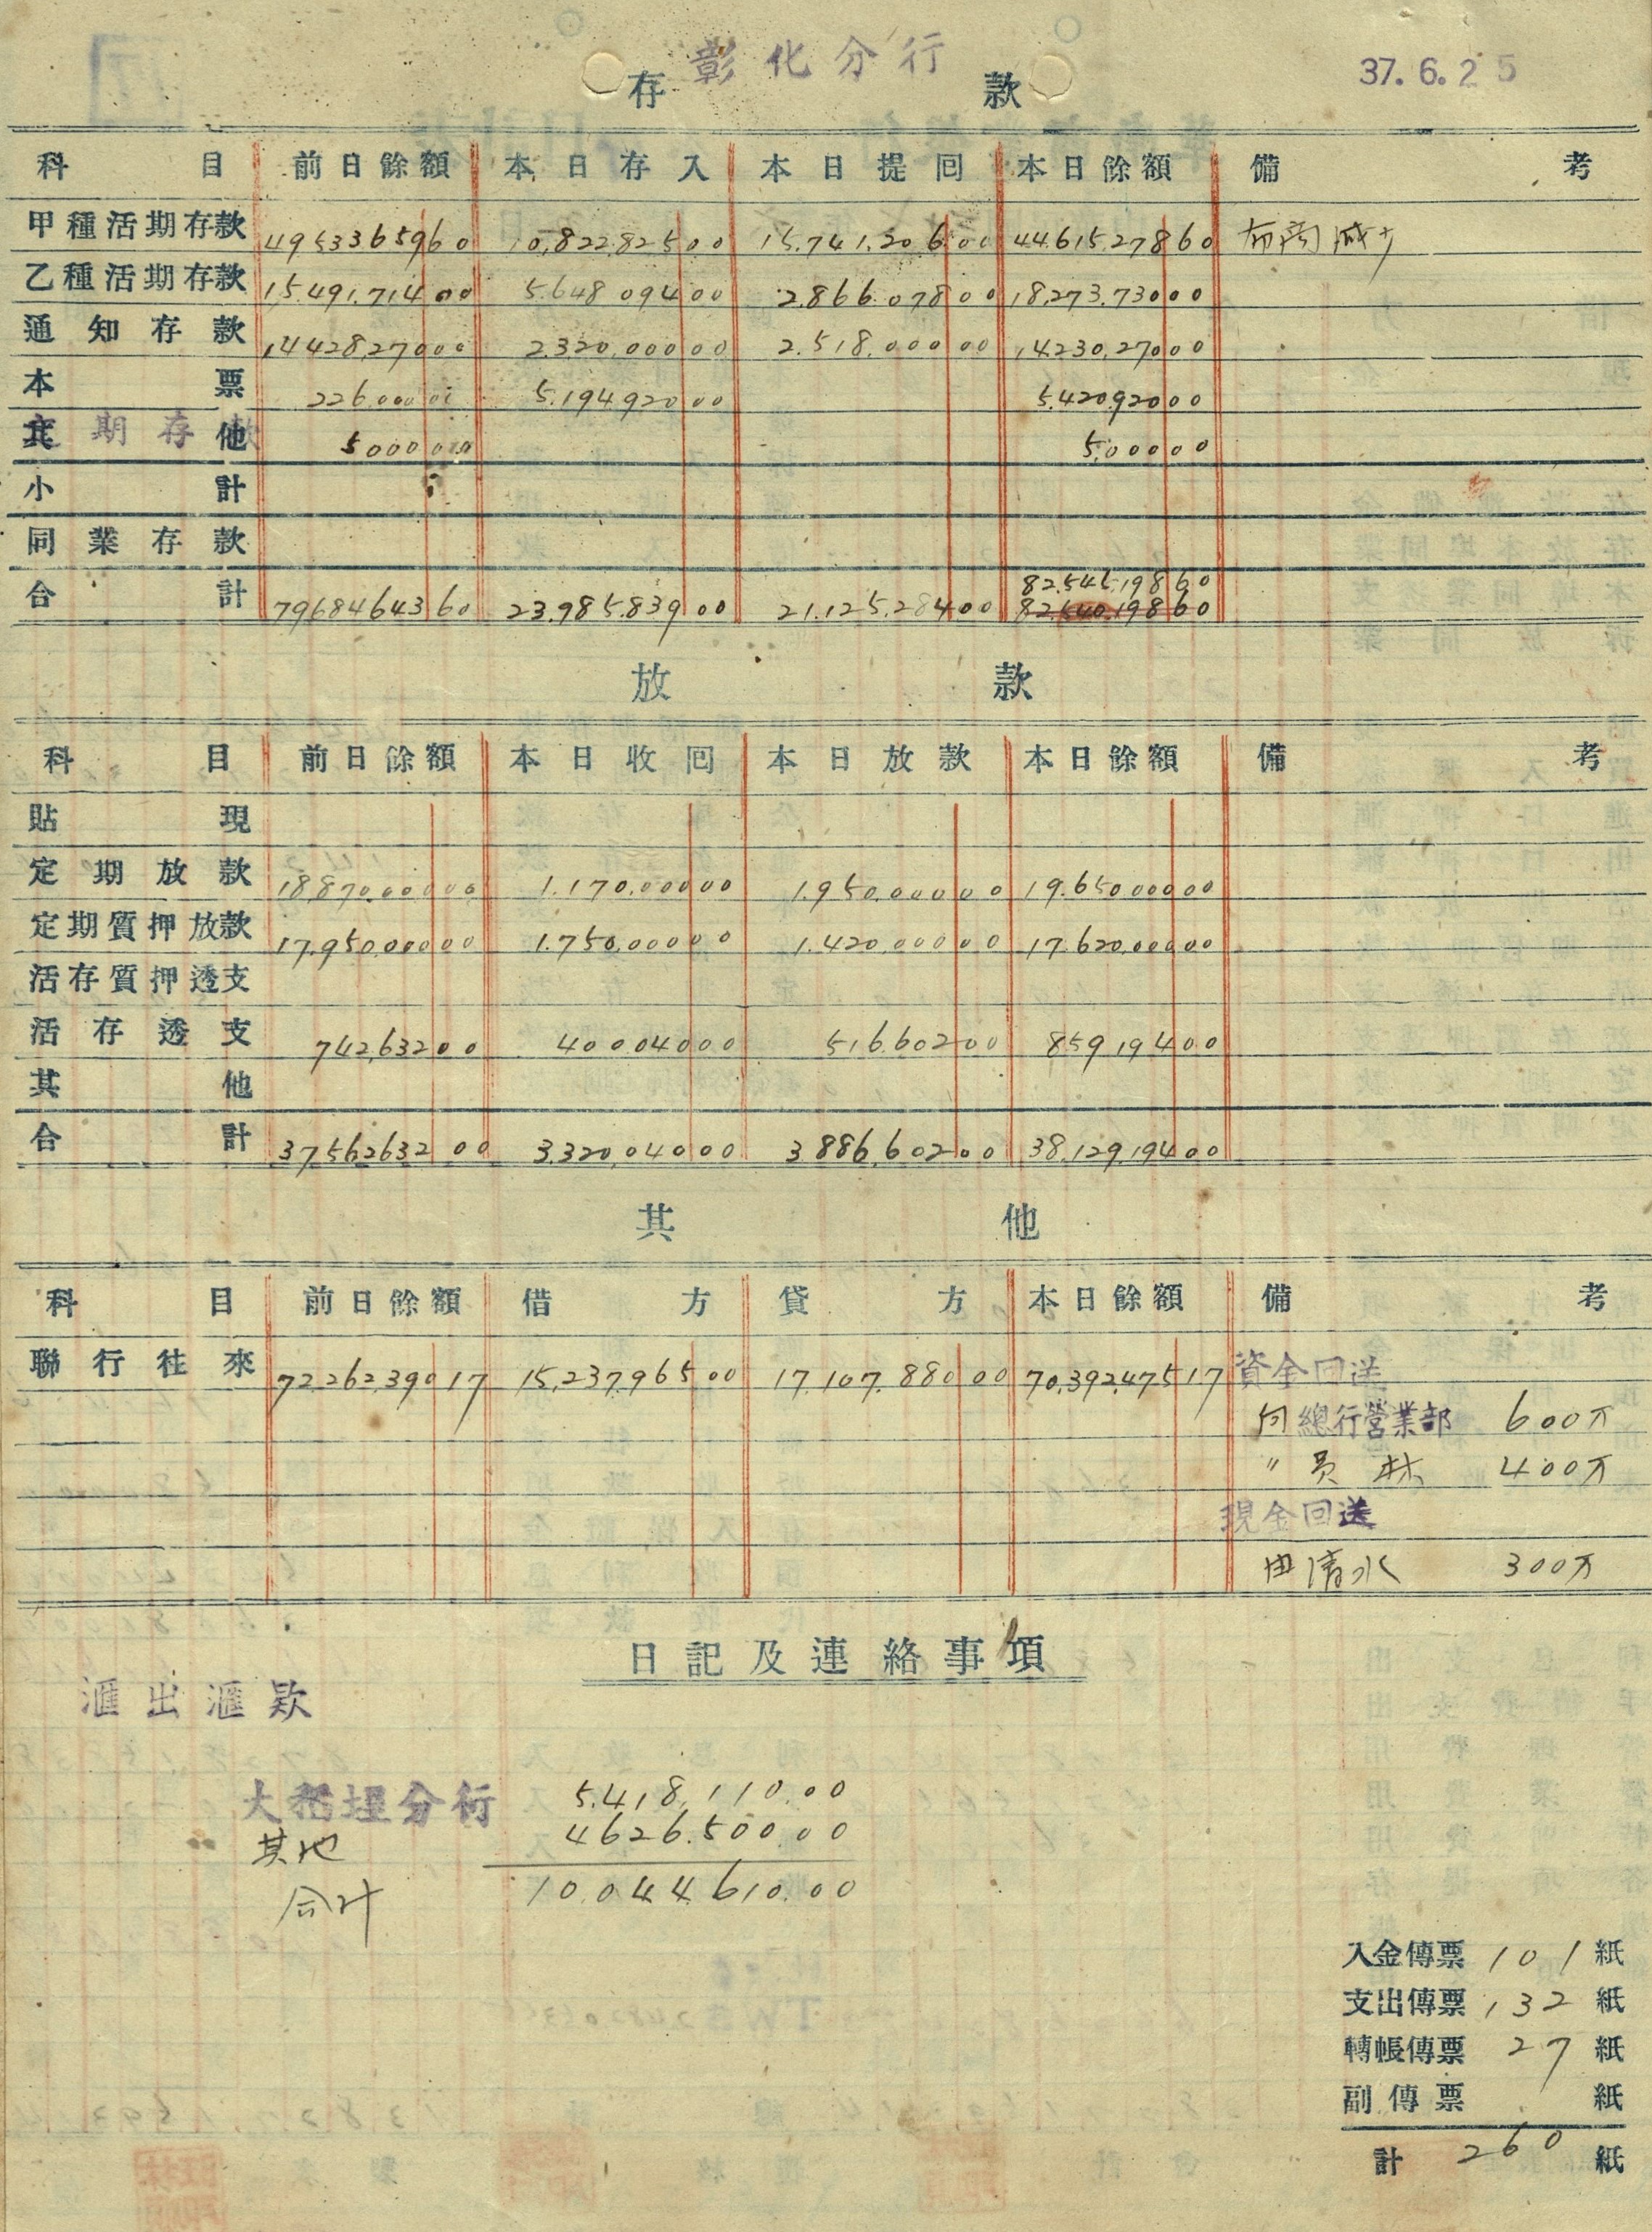 彰化分行
37.6.25
存 款
科 目 前日餘額 本日存入 本日提回 本日餘額 備 考
甲種活期存款 49533659 60 10.822.825 00 15.741.206 00 44.615.278 60 布商減少
乙種活期存款 15.491.714 00 5.648 094 00 2.866.078 00 18.273.730 00
通知存款 14428.270 00 2.320.000 00 2.518.000 00 14.230.270 00
本票 226.000 00 5.194920 00 5.420.920 00
其他 定期存款 5000 00 5.000 00
小計
同業存款
合計 79684643 60 23.985.839 00 21.125.284 00 82.545.198 60
82.540.198 60
放 款
科 目 前日餘額 本日收回 本日放款 本日餘額 備 考
貼現
定期放款 18.870.000 00 1.170.000 00 1.950.000 00 19.650.000 00
定期質押放款 17.950.000 00 1.750.000 00 1.420.000 00 17.620.000 00
活存質押透支
活存透支 742.632 00 400040 00 516.602 00 859194 00
其他
合計 37562632 00 3.320.040 00 3886.602 00 38.129.194 00
其 他
科 目 前日餘額 借 方 貸 方 本日餘額 備 考
聯行往來 72262.390 17 15,237,965 00 17.107.880 00 70,392,475 17 資金回送
向總行營業部 600万
〃員林 400万
現金回送
由清水 300万
日記及連絡事項
滙出滙款
大稻埕分行 5.418.110.00
其他 4626.500.00
合計 10.044.610.00
入金傳票 101 紙
支出傳票 132 紙
轉帳傳票 27 紙
副傳票 紙
計 260 紙